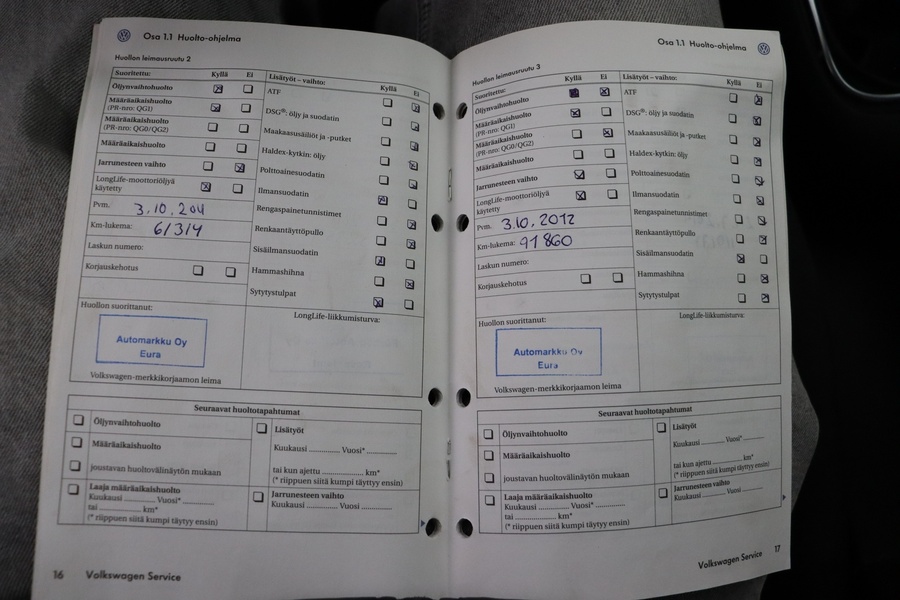 Osa 1.1 Huolto-ohjelma
Huollon leimausruutu 2
Suoritettu: Kyllä Ei
Öljynvaihtohuolto
Määräaikaishuolto
(PR-nro: QG1)
Määräaikaishuolto
(PR-nro: QG0/QG2)
Määräaikaishuolto
Jarrunesteen vaihto
LongLife-moottoriöljyä
käytetty
Pvm. 3.10.2011
Km-lukema: 61314
Laskun numero:
Korjauskehotus
Lisätyöt – vaihto: Kyllä Ei
ATF
DSG®: öljy ja suodatin
Maakaasusäiliöt ja -putket
Haldex-kytkin: öljy
Polttoainesuodatin
Ilmansuodatin
Rengaspainetunnistimet
Renkaantäyttöpullo
Sisäilmansuodatin
Hammashihna
Sytytystulpat
Huollon suorittanut:
Automarkku Oy
Eura
Volkswagen-merkkikorjaamon leima
LongLife-liikkumisturva:
Seuraavat huoltotapahtumat
Öljynvaihtohuolto
Määräaikaishuolto
joustavan huoltovälinäytön mukaan
Laaja määräaikaishuolto
Kuukausi ............ Vuosi* ............
tai ............... km*
(* riippuen siitä kumpi täytyy ensin)
Lisätyöt
Kuukausi ............ Vuosi* ............
tai kun ajettu ............... km*
(* riippuen siitä kumpi täytyy ensin)
Jarrunesteen vaihto
Kuukausi ............ Vuosi ............
16 Volkswagen Service
Osa 1.1 Huolto-ohjelma
Huollon leimausruutu 3
Suoritettu: Kyllä Ei
Öljynvaihtohuolto
Määräaikaishuolto
(PR-nro: QG1)
Määräaikaishuolto
(PR-nro: QG0/QG2)
Määräaikaishuolto
Jarrunesteen vaihto
LongLife-moottoriöljyä
käytetty
Pvm. 3.10.2012
Km-lukema: 91860
Laskun numero:
Korjauskehotus
Lisätyöt – vaihto: Kyllä Ei
ATF
DSG®: öljy ja suodatin
Maakaasusäiliöt ja -putket
Haldex-kytkin: öljy
Polttoainesuodatin
Ilmansuodatin
Rengaspainetunnistimet
Renkaantäyttöpullo
Sisäilmansuodatin
Hammashihna
Sytytystulpat
Huollon suorittanut:
Automarkku Oy
Eura
Volkswagen-merkkikorjaamon leima
LongLife-liikkumisturva:
Seuraavat huoltotapahtumat
Öljynvaihtohuolto
Määräaikaishuolto
joustavan huoltovälinäytön mukaan
Laaja määräaikaishuolto
Kuukausi ............ Vuosi* ............
tai ............... km*
(* riippuen siitä kumpi täytyy ensin)
Lisätyöt
Kuukausi ............ Vuosi* ............
tai kun ajettu ............... km*
(* riippuen siitä kumpi täytyy ensin)
Jarrunesteen vaihto
Kuukausi ............ Vuosi ............
Volkswagen Service 17